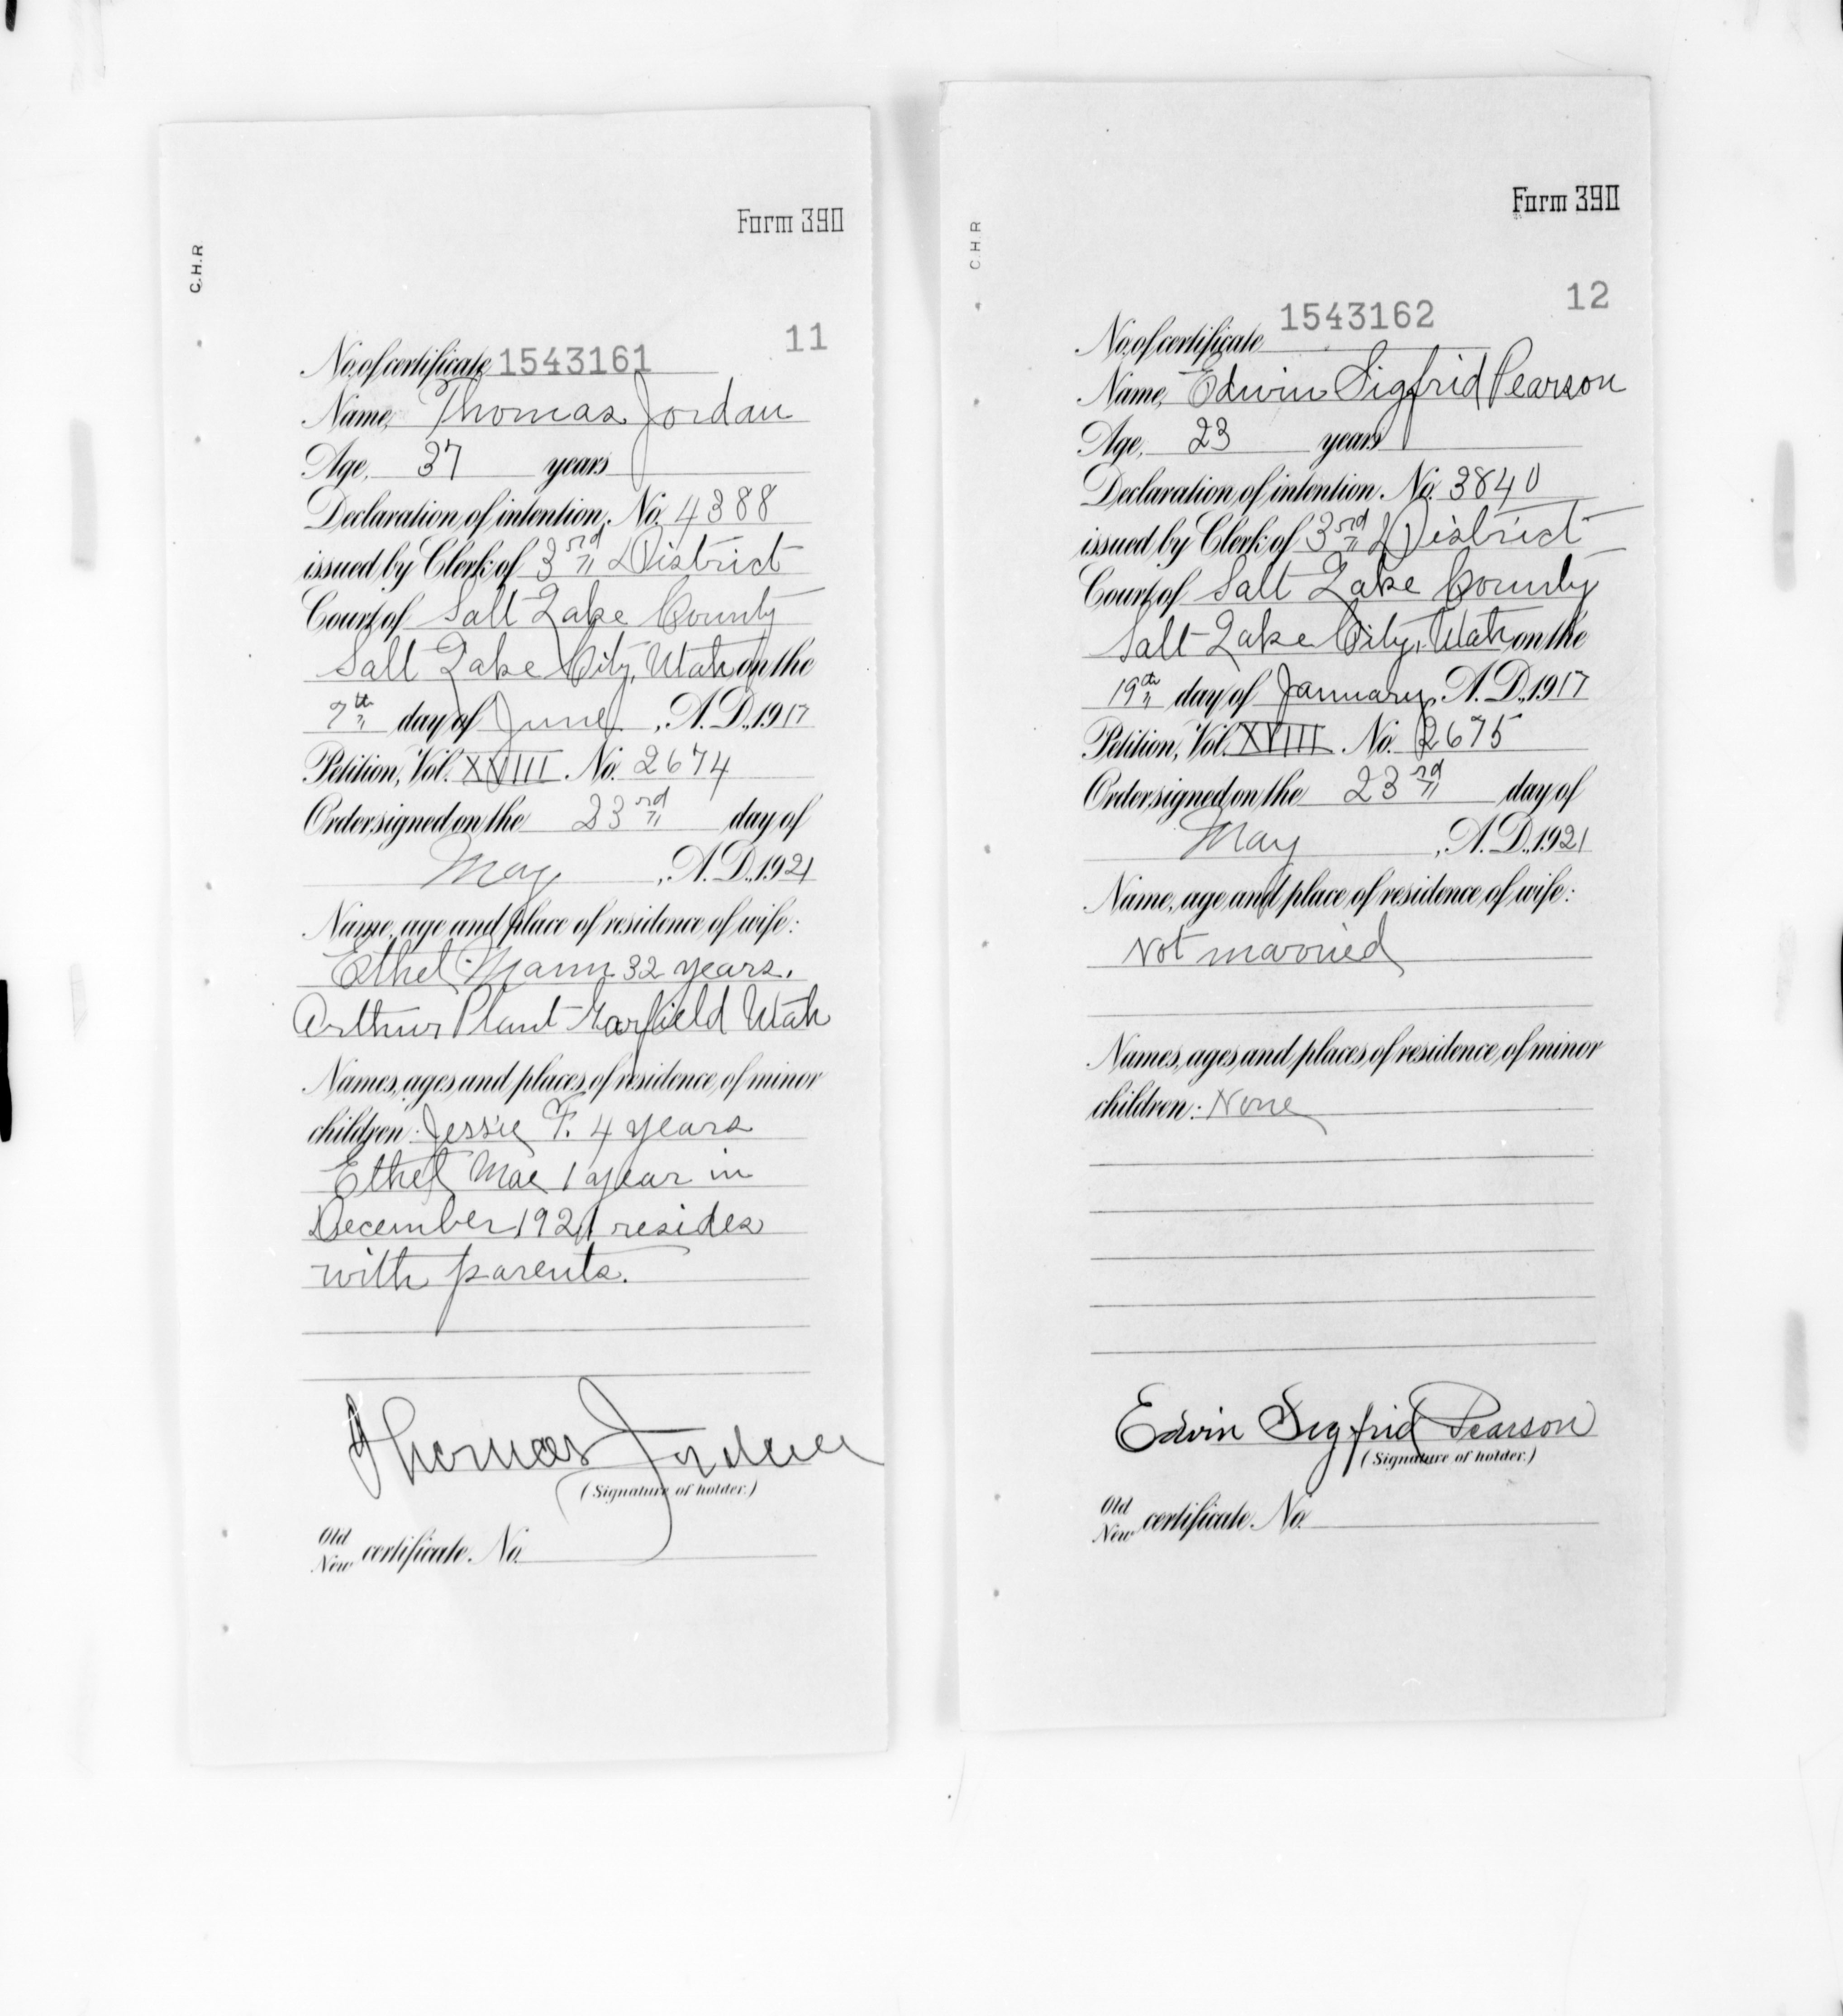 Form 390
C.H.R
11
No. of certificate 1543161
Name, Thomas Jordan
Age, 37 years
Declaration of intention, No. 4388
issued by Clerk of 3rd District
Court of Salt Lake County
Salt Lake City, Utah on the
7th day of June, A. D., 1917
Petition, Vol. XVIII. No. 2674
Order signed on the 23rd day of
May, A. D., 1921
Name, age and place of residence of wife:
Ethel Mann 32 years.
Arthur Plant Garfield Utah
Names, ages and places of residence of minor
children: Jessie F. 4 years
Ethel Mae 1 year in
December 1921 resides
with parents.
Thomas Jordan
(Signature of holder.)
Old
New certificate. No.
Form 390
C.H.R
12
No. of certificate 1543162
Name, Edwin Sigfrid Pearson
Age, 23 years
Declaration of intention. No. 3840
issued by Clerk of 3rd District
Court of Salt Lake County
Salt Lake City, Utah on the
19th day of January, A. D., 1917
Petition, Vol. XVIII. No. 2675
Order signed on the 23rd day of
May, A. D., 1921
Name, age and place of residence of wife:
Not married
Names, ages and places of residence of minor
children: None
Edwin Sigfrid Pearson
(Signature of holder.)
Old
New certificate. No.